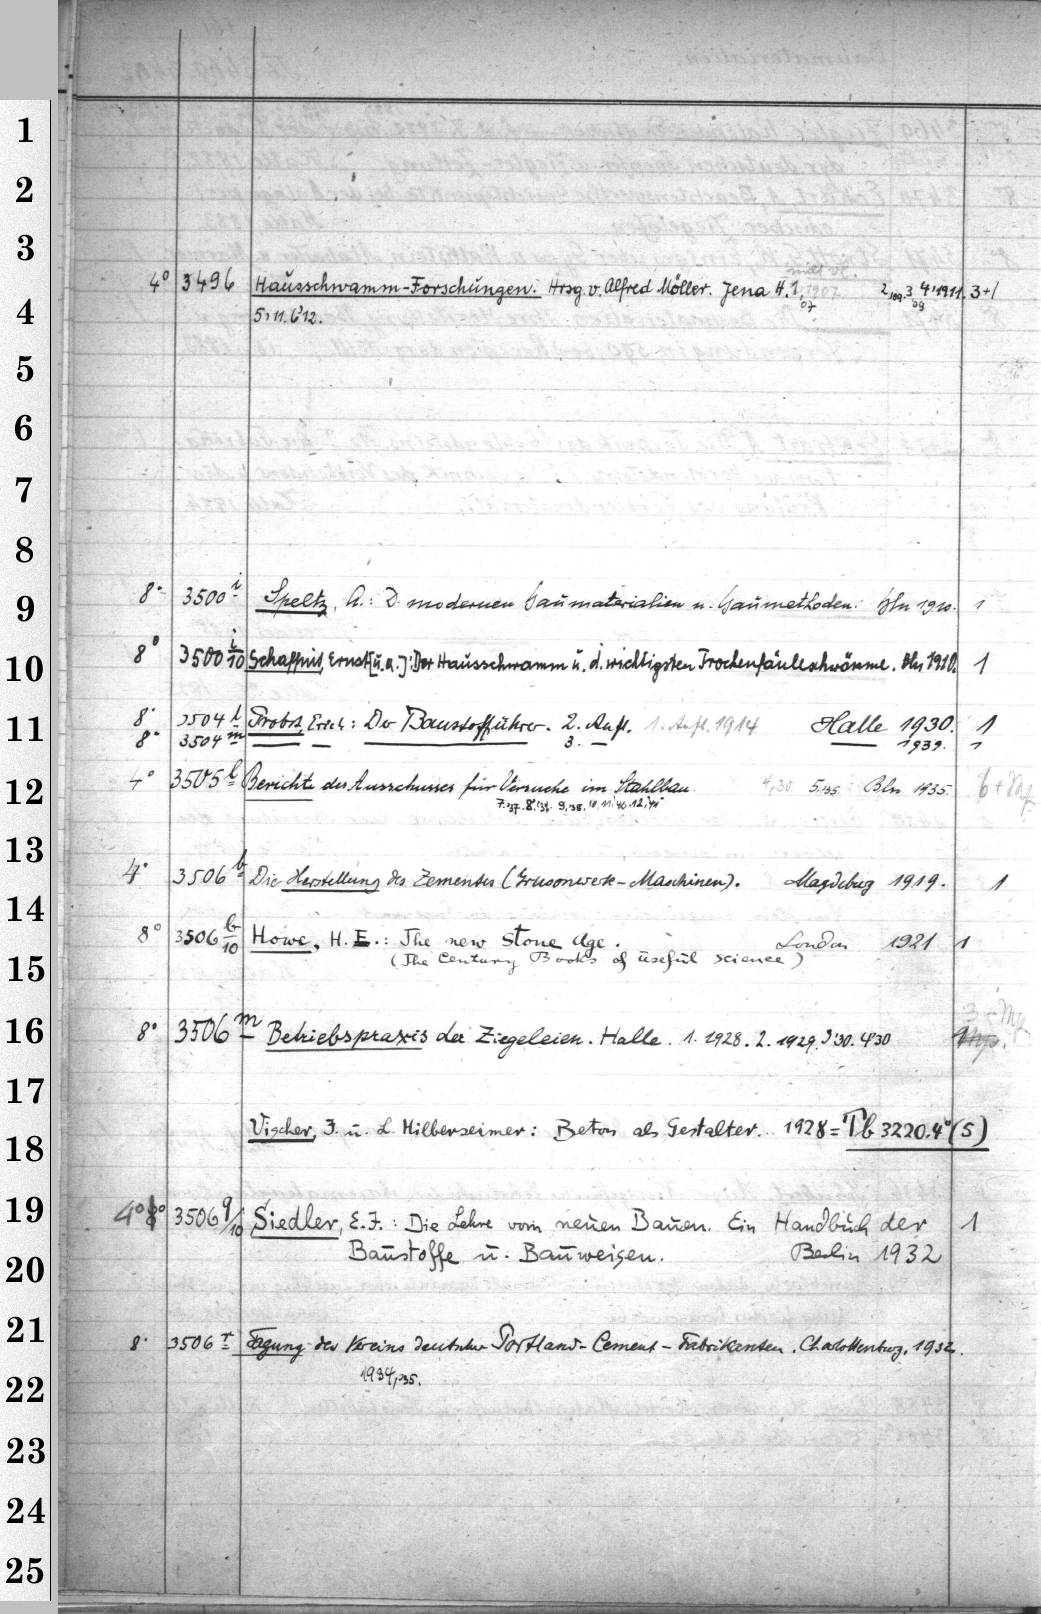 1
2
3
4° 3496 Hausschwamm-Forschungen. Hrsg. v. Alfred Möller. Jena H. 1, 1907 2,'09. 3 4'1911. 3+1
07 '09
4
5'11. 6'12.
5
6
7
8
9
8° 3500 i Speltz, A.: D. modernen Baumaterialien u. Baumethoden. Bln 1910. 1
10
8° 3500 i/10 Schaffnit, Ernst [u.a.]: Der Hausschwamm u. d. wichtigsten Trockenfäuleschwämme. Bln 1910. 1
11
8° 3504 l Probst, Erich: Der Baustofführer. 2. Aufl. 1. Aufl. 1914 Halle 1930. 1
8° 3504 m 3. — 1939. 1
12
4° 3505 l Berichte des Ausschusses für Versuche im Stahlbau 4,30 5,'35 Bln 1935. 6+
7.'37. 8,'38. 9,'38. 10, 11,'40. 12,'41
13
14
4° 3506 b Die Herstellung des Zementes (Grusonwerk-Maschinen). Magdeburg 1919. 1
8° 3506 b/10 Howe, H. E.: The new Stone Age. London 1921 1
15
(The Century Books of useful science)
16
8° 3506 m Betriebspraxis der Ziegeleien. Halle. 1. 1928. 2. 1929. 3'30. 4'30
17
18
Vischer, J. u. L. Hilberseimer: Beton als Gestalter. 1928 = Tb 3220.4° (5)
19
4° 8° 3506 q/10 Siedler, E.J.: Die Lehre vom neuen Bauen. Ein Handbuch der 1
20
Baustoffe u. Bauweisen. Berlin 1932
21
8° 3506 r Tagung des Vereins deutscher Portland-Cement-Fabrikanten. Charlottenburg. 1932.
22
1934, '35.
23
24
25